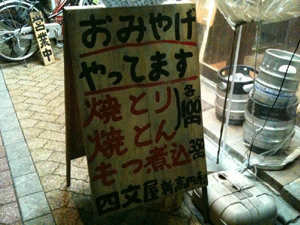 営業中
おみやげ
やってます
焼とり
焼とん 各100
もつ煮込 350
四文屋 新高円寺